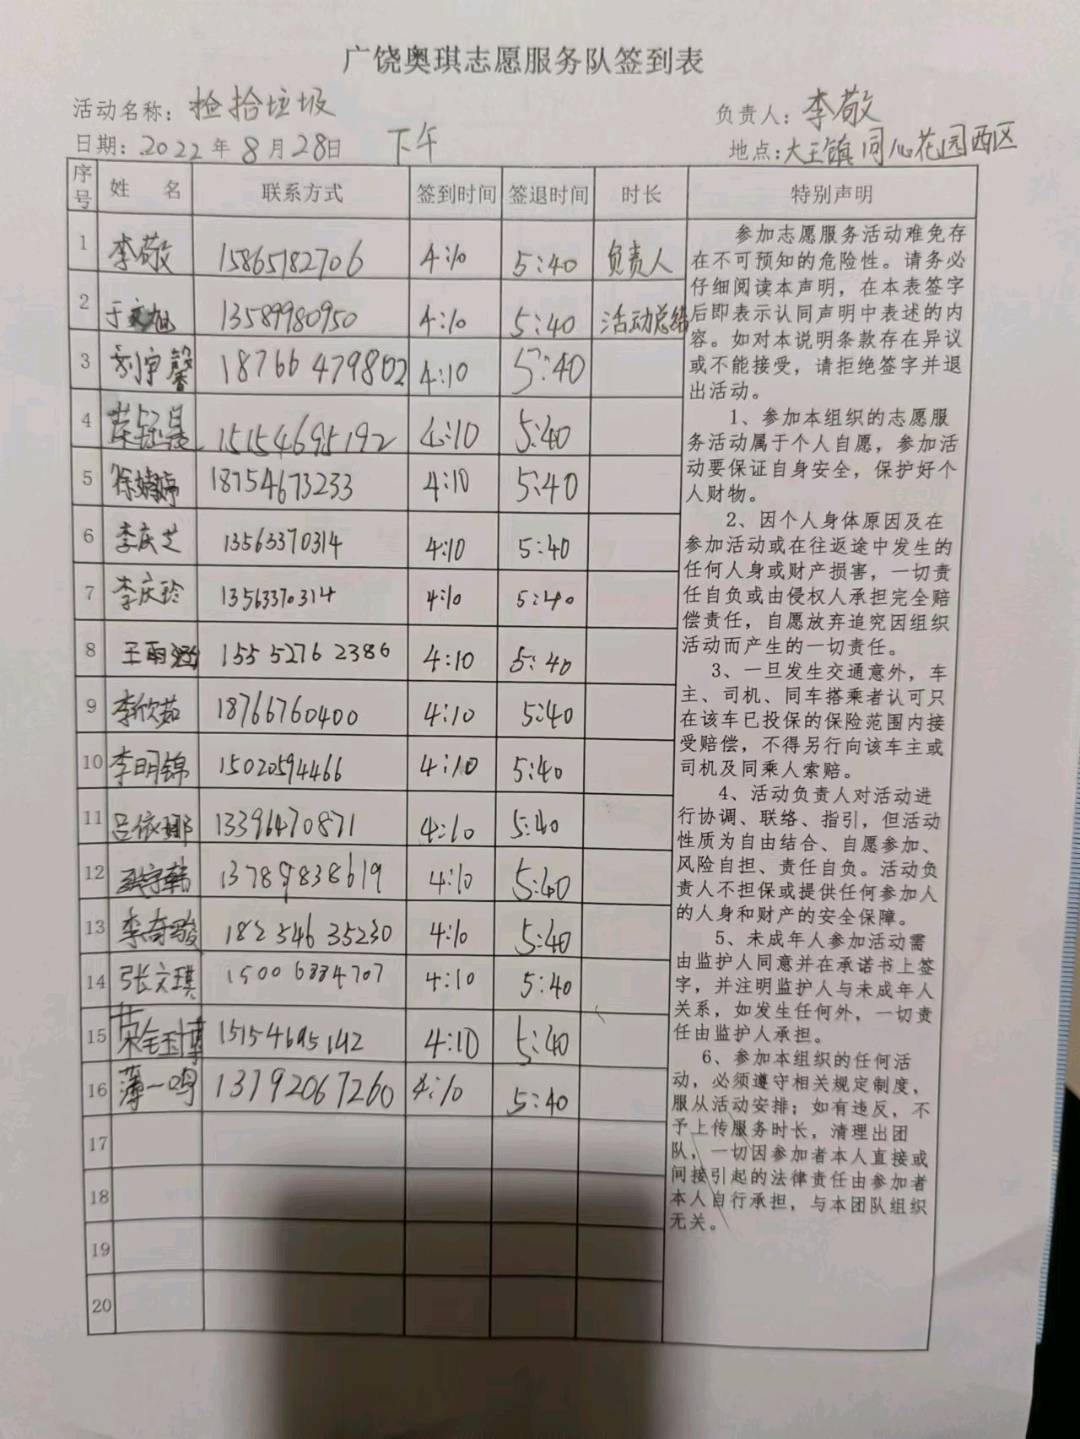 广饶奥琪志愿服务队签到表
活动名称：捡拾垃圾 负责人：李敬
日期：2022年8月28日 下午 地点：大王镇同心花园西区
序号 姓名 联系方式 签到时间 签退时间 时长 特别声明
1 李敬 15865182706 4:10 5:40 负责人
2 于 13589980950 4:10 5:40 活动总结
3 刘宇馨 18766479802 4:10 5:40
4 15154695192 4:10 5:40
5 徐婧婷 18754673233 4:10 5:40
6 李庆芝 13563370314 4:10 5:40
7 李庆玲 13563370314 4:10 5:40
8 王雨涵 15552762386 4:10 5:40
9 李欣茹 18766760400 4:10 5:40
10 李明锦 15020594466 4:10 5:40
11 吕依娜 13396470871 4:10 5:40
12 13789838619 4:10 5:40
13 李奇骏 18254635230 4:10 5:40
14 张文琪 15006334707 4:10 5:40
15 4:10 5:40
16 薄一鸣 13792067260 4:10 5:40
17
18
19
20
参加志愿服务活动难免存
在不可预知的危险性。请务必
仔细阅读本声明，在本表签字
后即表示认同声明中表述的内
容。如对本说明条款存在异议
或不能接受，请拒绝签字并退
出活动。
1、参加本组织的志愿服
务活动属于个人自愿，参加活
动要保证自身安全，保护好个
人财物。
2、因个人身体原因及在
参加活动或在往返途中发生的
任何人身或财产损害，一切责
任自负或由侵权人承担完全赔
偿责任，自愿放弃追究因组织
活动而产生的一切责任。
3、一旦发生交通意外，车
主、司机、同车搭乘者认可只
在该车已投保的保险范围内接
受赔偿，不得另行向该车主或
司机及同乘人索赔。
4、活动负责人对活动进
行协调、联络、指引，但活动
性质为自由结合、自愿参加、
风险自担、责任自负。活动负
责人不担保或提供任何参加人
的人身和财产的安全保障。
5、未成年人参加活动需
由监护人同意并在承诺书上签
字，并注明监护人与未成年人
关系，如发生任何外，一切责
任由监护人承担。
6、参加本组织的任何活
动，必须遵守相关规定制度，
服从活动安排；如有违反，不
予上传服务时长，清理出团
队，一切因参加者本人直接或
间接引起的法律责任由参加者
本人自行承担，与本团队组织
无关。